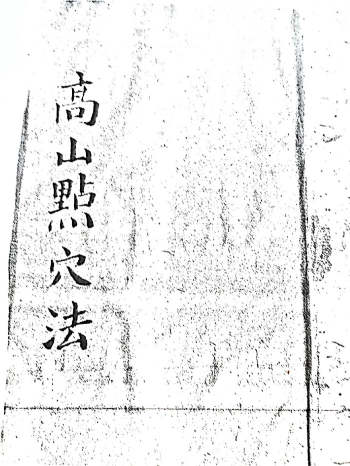 高山點穴法